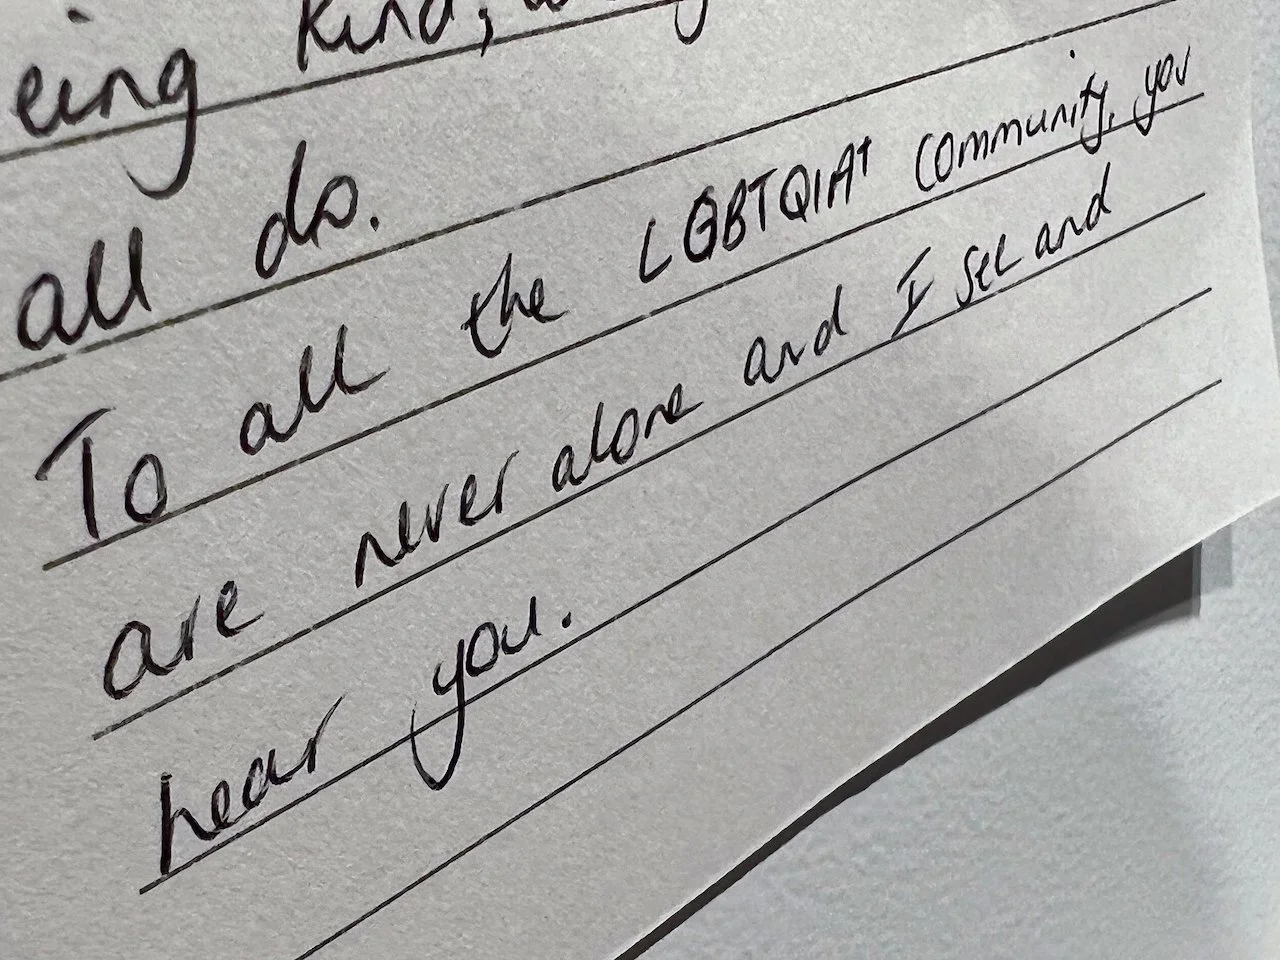 eing kind,
all do.
To all the LGBTQIA+ community, you
are never alone and I see and
hear you.